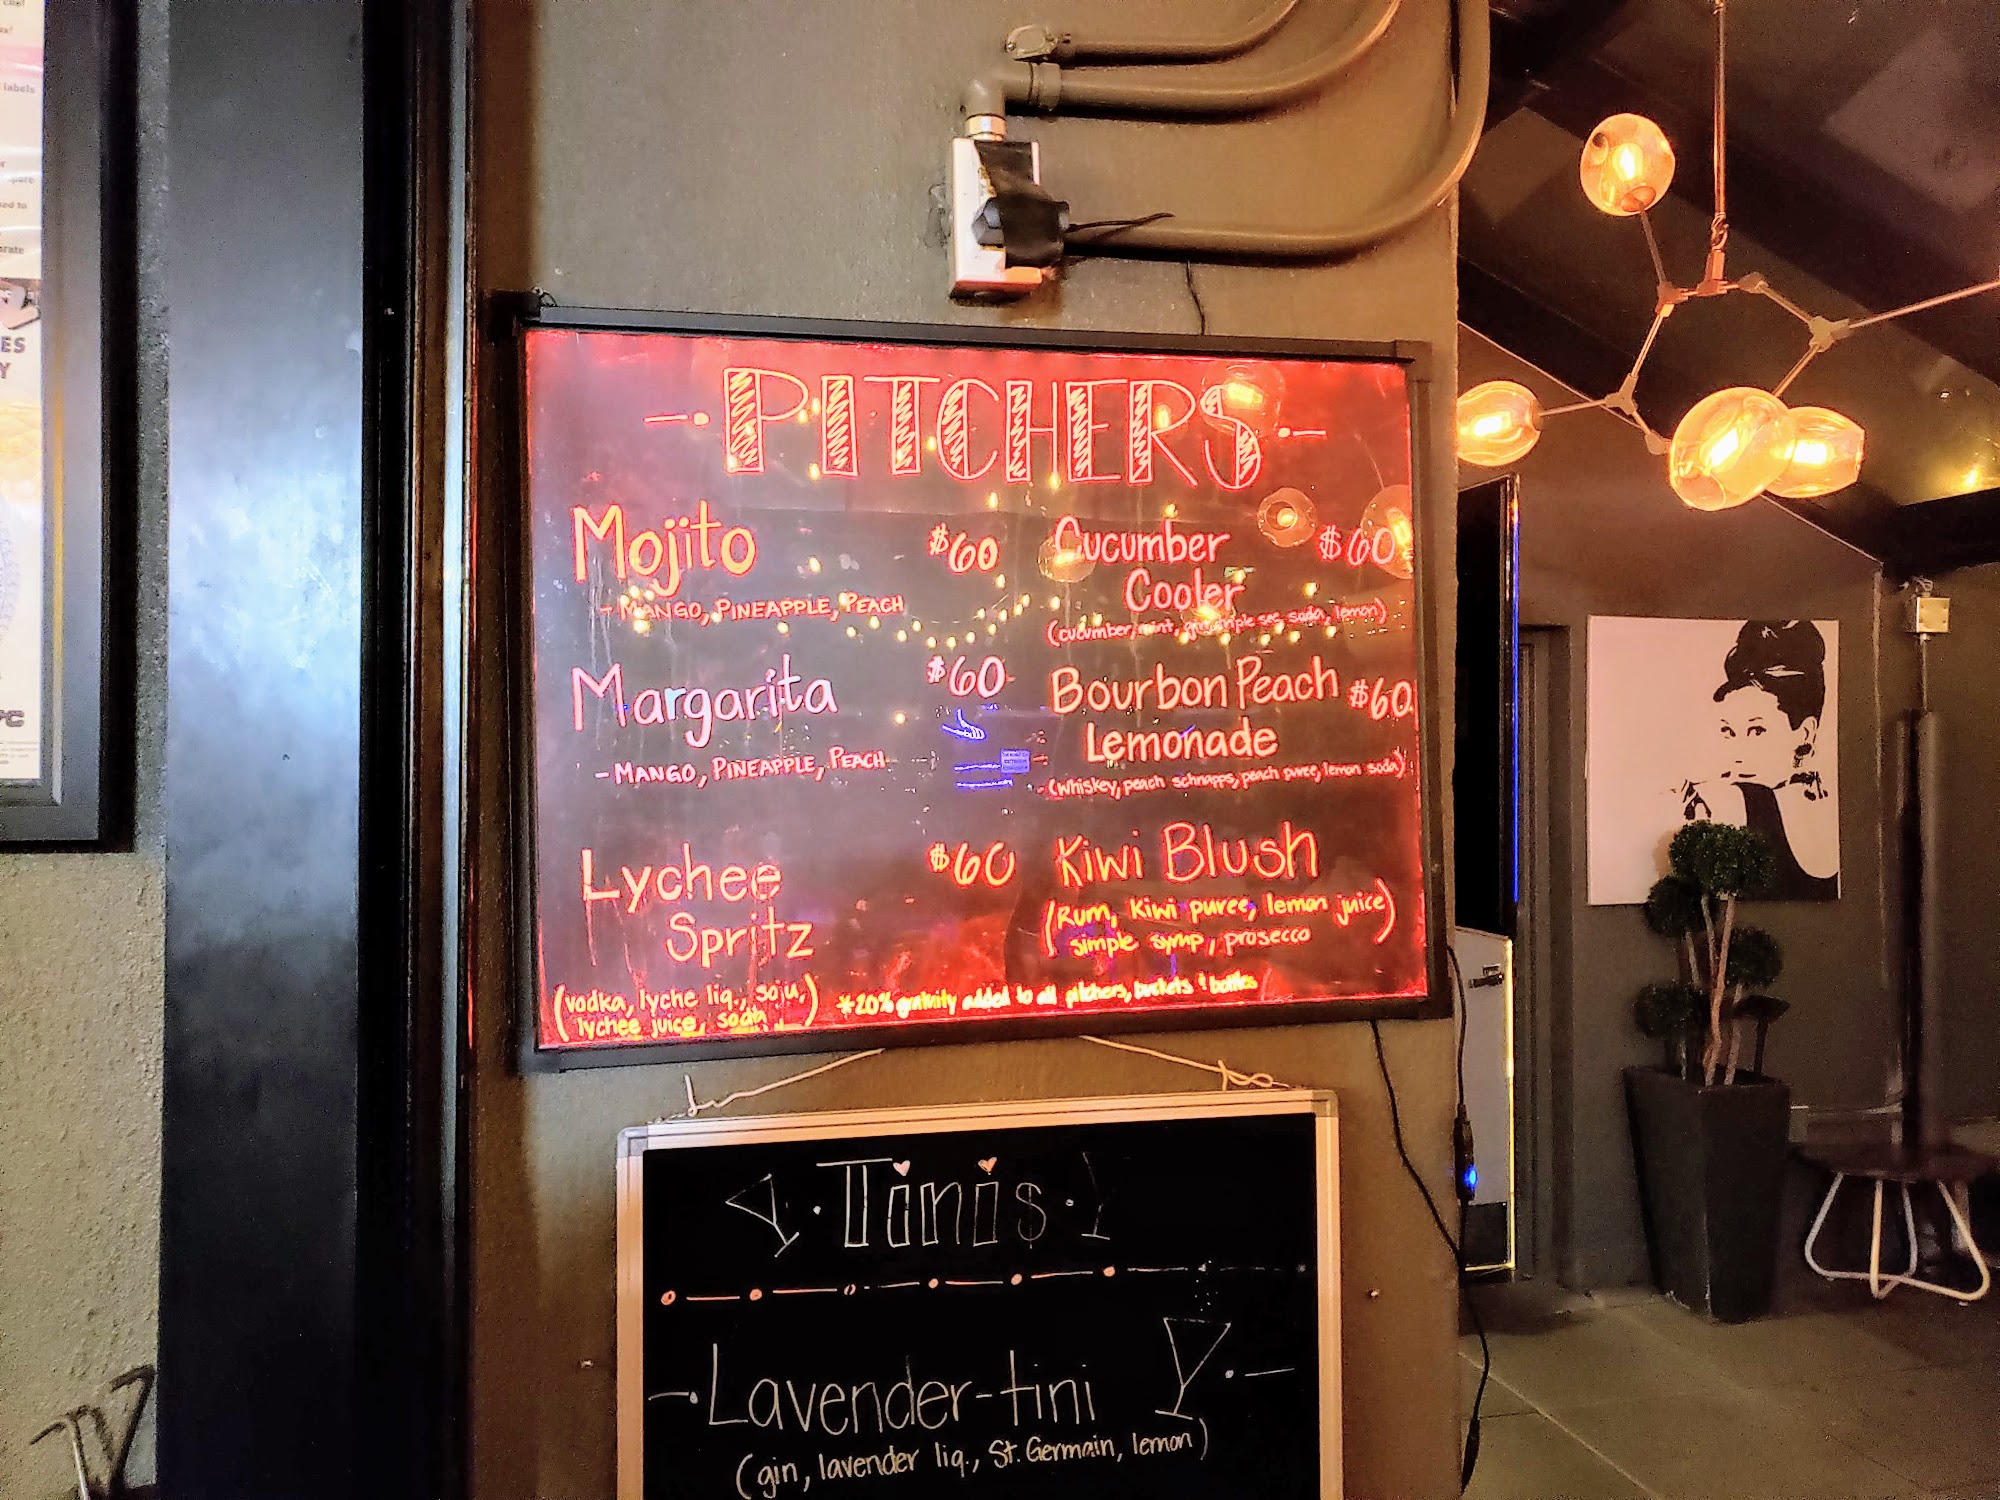 labels
ES
Y
PITCHERS
Mojito $60
- MANGO, PINEAPPLE, PEACH
Margarita $60
- MANGO, PINEAPPLE, PEACH
Lychee $60
Spritz
(vodka, lyche liq., soju,
lychee juice, soda)
Cucumber $60
Cooler
(cucumber, mint, gin, triple sec, soda, lemon)
Bourbon Peach $60
Lemonade
(whiskey, peach schnapps, peach puree, lemon soda)
Kiwi Blush
(Rum, kiwi puree, lemon juice
simple syrup, prosecco)
*20% gratuity added to all pitchers, buckets & bottles
Tini$
Lavender-tini
(gin, lavender liq., St. Germain, lemon)